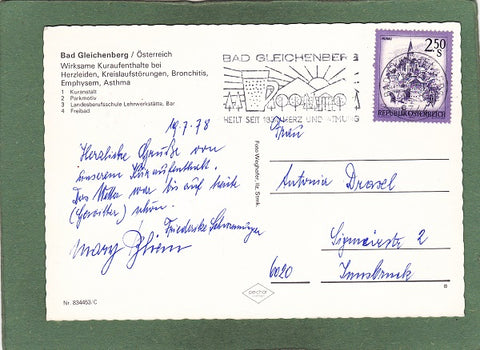 Bad Gleichenberg / Österreich
Wirksame Kuraufenthalte bei
Herzleiden, Kreislaufstörungen, Bronchitis,
Emphysem, Asthma
1 Kuranstalt
2 Parkmotiv
3 Landesberufsschule Lehrwerkstätte, Bar
4 Freibad
BAD GLEICHENBERG
HEILT SEIT 1834 HERZ UND ATMUNG
2.50
S
REPUBLIK ÖSTERREICH
19.7.78
Herzliche Grüße von
unserem Kuraufenthalt.
Das Wetter war bis auf heute
(Gewitter) schön.
Friederike
Mary
Frau
Antonia Drasel
2
6020 Innsbruck
Nr. 834453/C